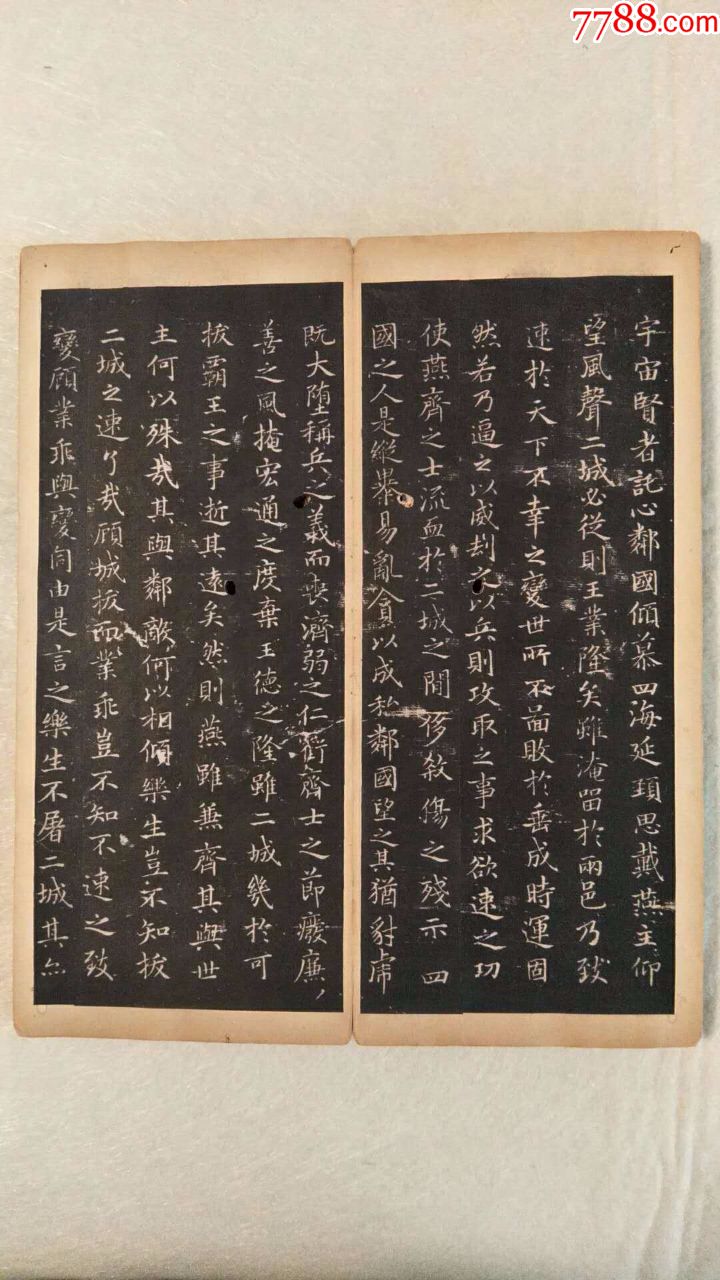 7788.com
宇宙賢者託心鄰國傾慕四海延頸思戴燕主仰
望風聲二城必從則王業隆矣雖淹留於兩邑乃致
速於天下不幸之變世所不啚敗於垂成時運固
然若乃逼之以威劫之以兵則攻取之事求欲速之功
使燕齊之士流血於二城之間侈殺傷之殘示四
國之人是縱暴易亂貪以成私鄰國望之其猶豺虎
既大墮稱兵之義而喪濟弱之仁虧齊士之節廢廉
善之風掩宏通之度棄王德之隆雖二城幾於可
拔霸王之事逝其遠矣然則燕雖兼齊其與世
主何以殊哉其與鄰敵何以相傾樂生豈不知拔
二城之速了哉顧城拔而業乖豈不知不速之致
變顧業乖與變同由是言之樂生不屠二城其亦